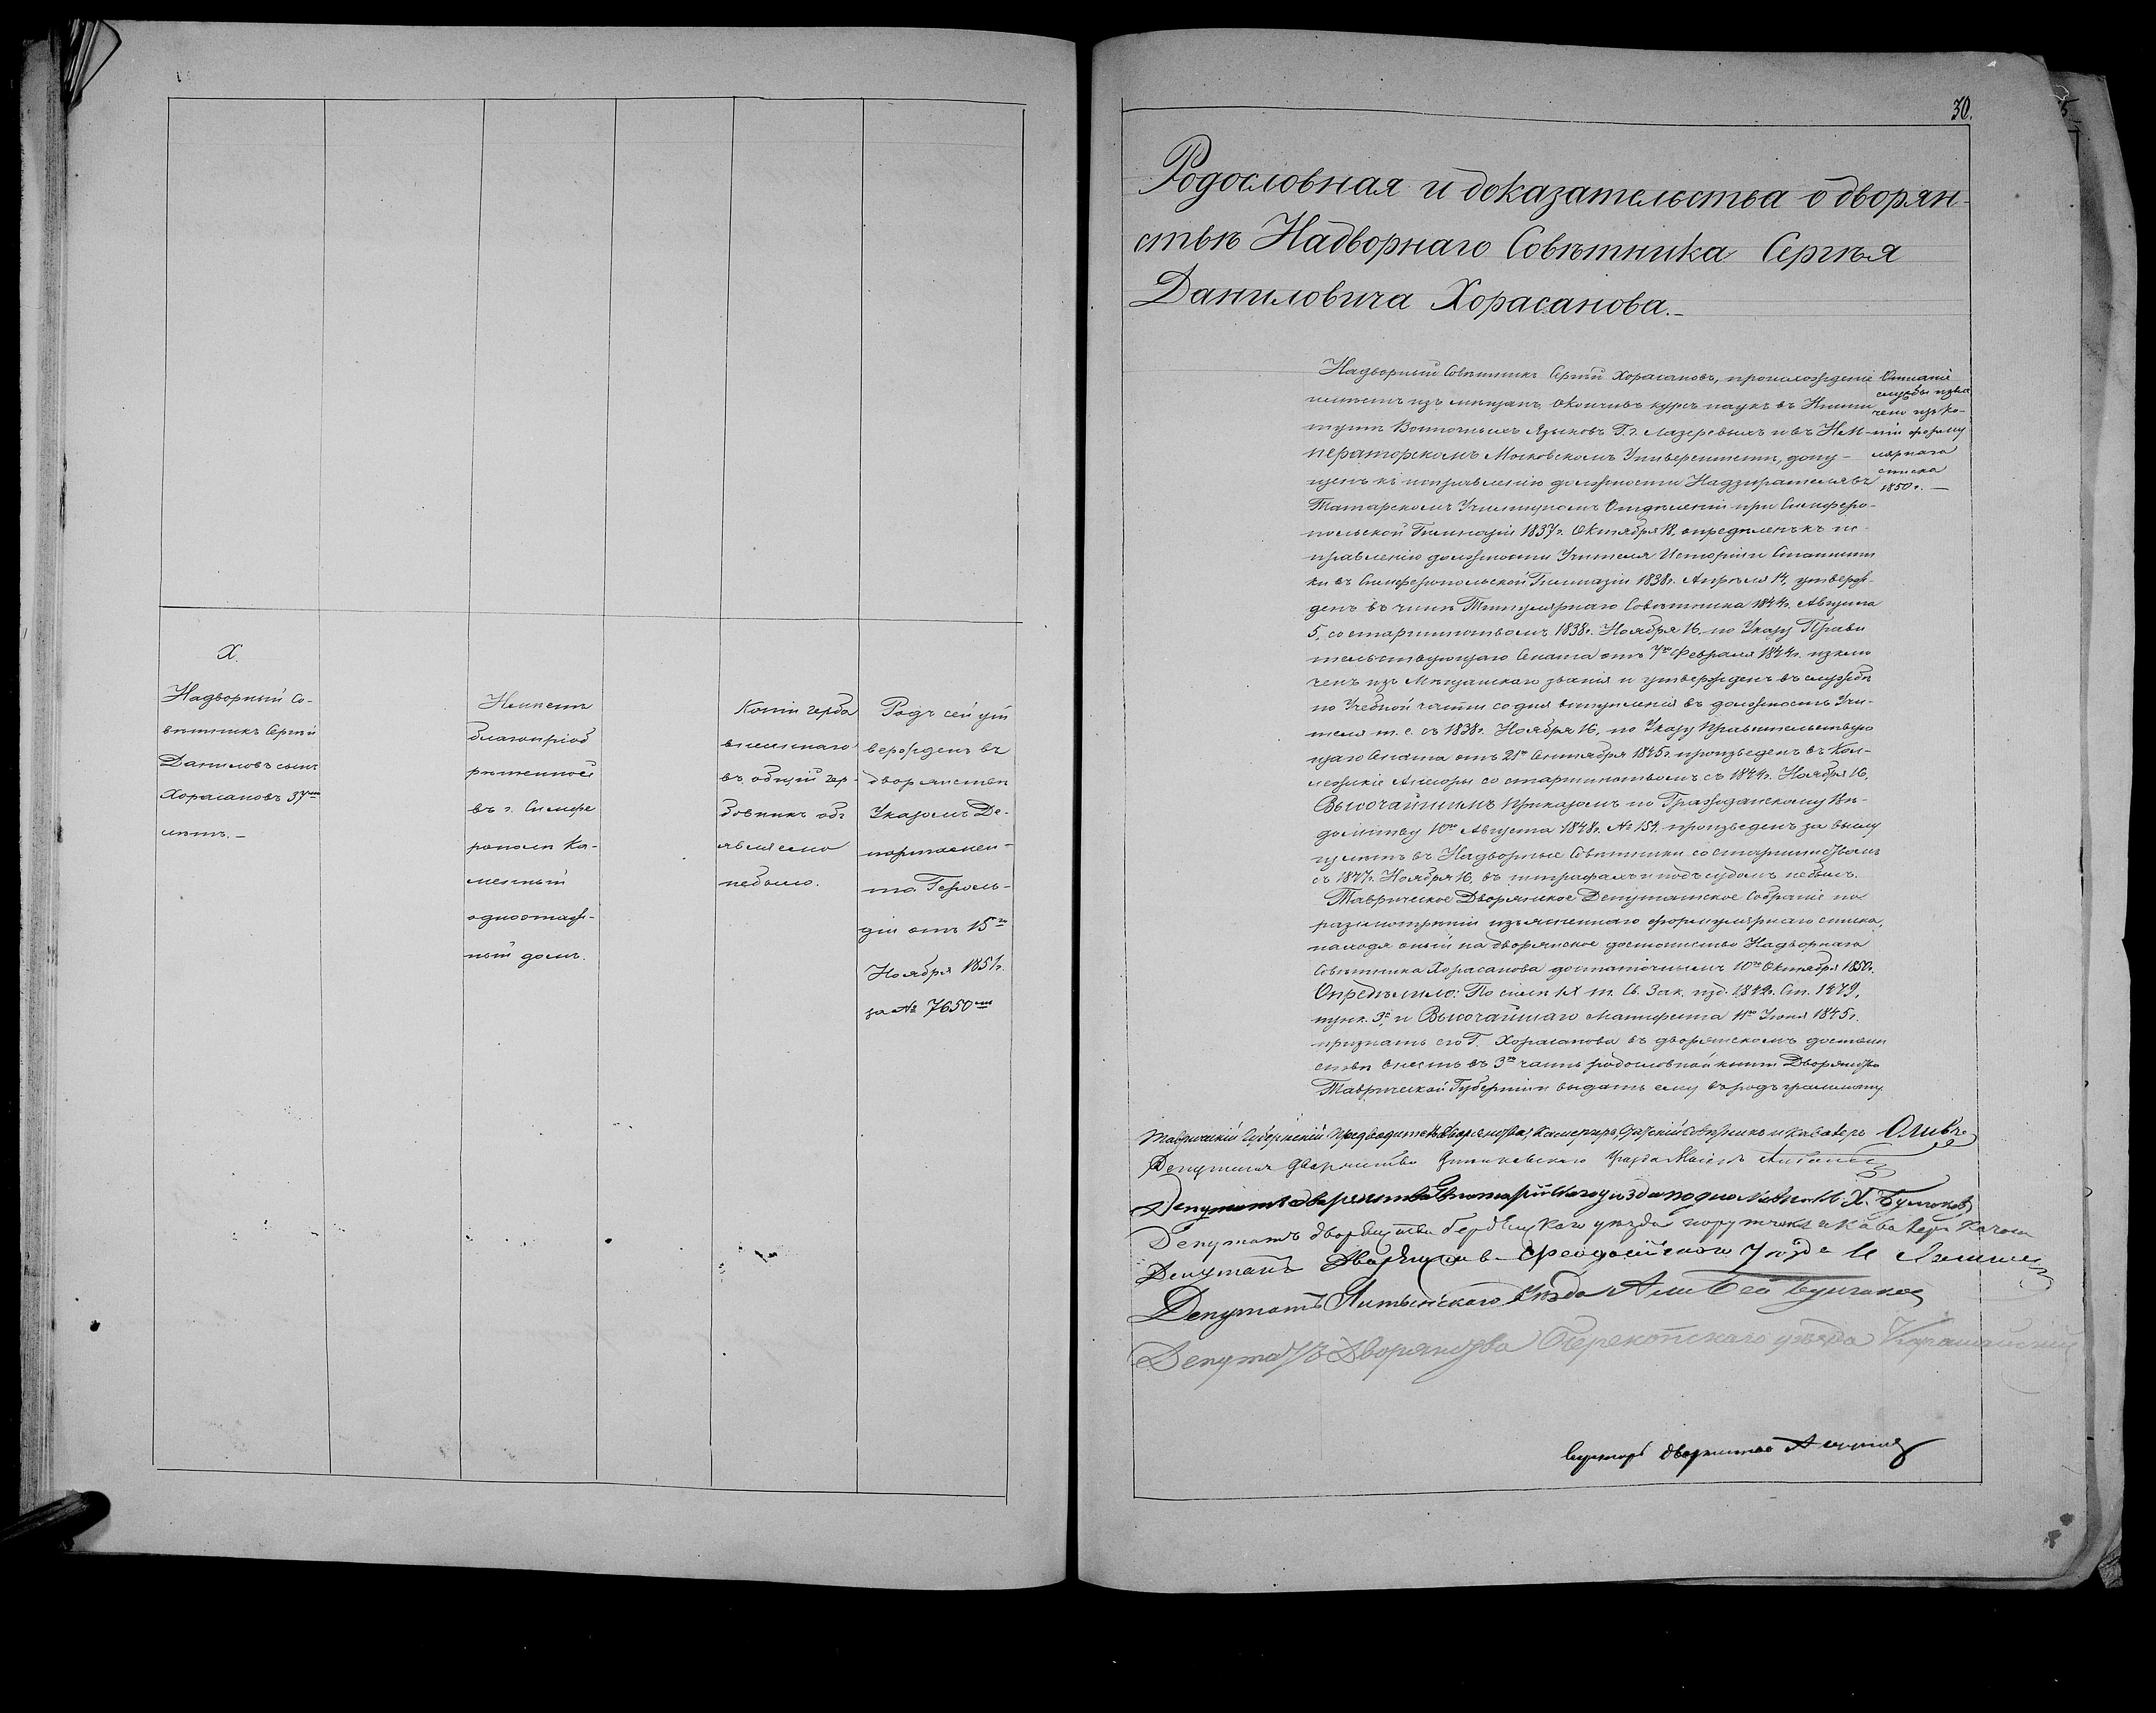 Х.
Надворный Со-
вѣтникъ Сергѣй
Даниловъ сынъ
Хорасановъ 37ми
лѣтъ. —
Имѣетъ
благопріоб
рѣтенной
въ г. Симфе
рополѣ Ка-
менный
одноэтаж-
ный домъ.
Копіи герба
внесеннаго
въ общій гер-
бовникъ объ
явлено
небыло.
Родъ сей ут
вержденъ въ
дворянствѣ
Указомъ Де-
партамен-
та Героль-
діи отъ 15го
Ноября 1851г.
за № 7650мъ
30.
Родословная и доказательства о дворян-
ствѣ Надворнаго Совѣтника Сергѣя
Даниловича Хорасанова. —
Надворный Совѣтникъ Сергѣй Хорасановъ, происхожденіе
имѣетъ изъ мѣщанъ, окончивъ курсъ наукъ въ Инсти
тутѣ Восточныхъ Языковъ Г.г. Лазеревыхъ и въ ИМ-
ператорскомъ Московскомъ Университетѣ, допу-
щенъ къ исправленію должности Надзирателя въ
Татарскомъ Училищномъ Отдѣленіи при Симферо-
польской Гимназіи 1837г. Октября 18, опредѣленъ къ ис-
правленію должности Учителя Исторіи и Статисти
ки въ Симферопольской Гимназіи 1838г. Апрѣля 14, утверж-
денъ въ чинѣ Титулярнаго Совѣтника 1844г. Августа
5, со старшинствомъ 1838г. Ноября 16, по Указу Прави
тельствующаго Сената отъ 7го Февраля 1844г. исклю
ченъ изъ Мѣщанскаго званія и утвержденъ въ службѣ
по Учебной части со дня вступленія въ должность Учи-
теля т. е. съ 1838г. Ноября 16, по Указу Правительствую
щаго Сената отъ 21го Сентября 1845г. произведенъ въ Кол-
лежскіе Ассесоры со старшинствомъ съ 1844г. Ноября 16,
Высочайшимъ Приказомъ по Гражданскому Вѣ-
домству 10го Августа 1848г. № 151. произведенъ за выслу
гу лѣтъ въ Надворные Совѣтники со старшинствомъ
съ 1847г. Ноября 16, въ штрафахъ и подъ судомъ не былъ.
Таврическое Дворянское Депутатское Собраніе по
разсмотрѣніи изъясненнаго формулярнаго списка,
находя оный на дворянское достоинство Надворнаго
Совѣтника Хорасанова достаточнымъ 10го Октября 1850г.
Опредѣлило: По силѣ IX т. Св. Зак. изд. 1842г. Ст. 1479,
пунк. 3й, и Высочайшаго Манифеста 11го Іюня 1845г.
признать его Г. Хорасанова въ дворянскомъ достоин
ствѣ внесть въ 3ю часть родословной книги Дворянства
Таврической Губерніи и выдать ему въ родъ грамоту.
Описаніе
службы извле
чено изъ Ко-
піи формy
лярнаго
списка
1850г. —
Таврическій Губернскій Предводитель Дворянства, Камергеръ, Статскій Совѣтникъ и Кавалеръ Оливъ
Депутатъ Дворянства Днѣпровскаго Уѣзда Маіоръ
Депутатъ дворянства Евпаторійскаго уѣзда подполковникъ Х. Булгаковъ
Депутатъ дворянства Бердянскаго уѣзда поручикъ и кавалеръ
Депутатъ Дворянства Феодосійскаго Уѣзда
Депутатъ Ялтинскаго Уѣзда Али Бей Булгаковъ
Депутатъ Дворянства Перекопскаго уѣзда
Секретарь дворянства